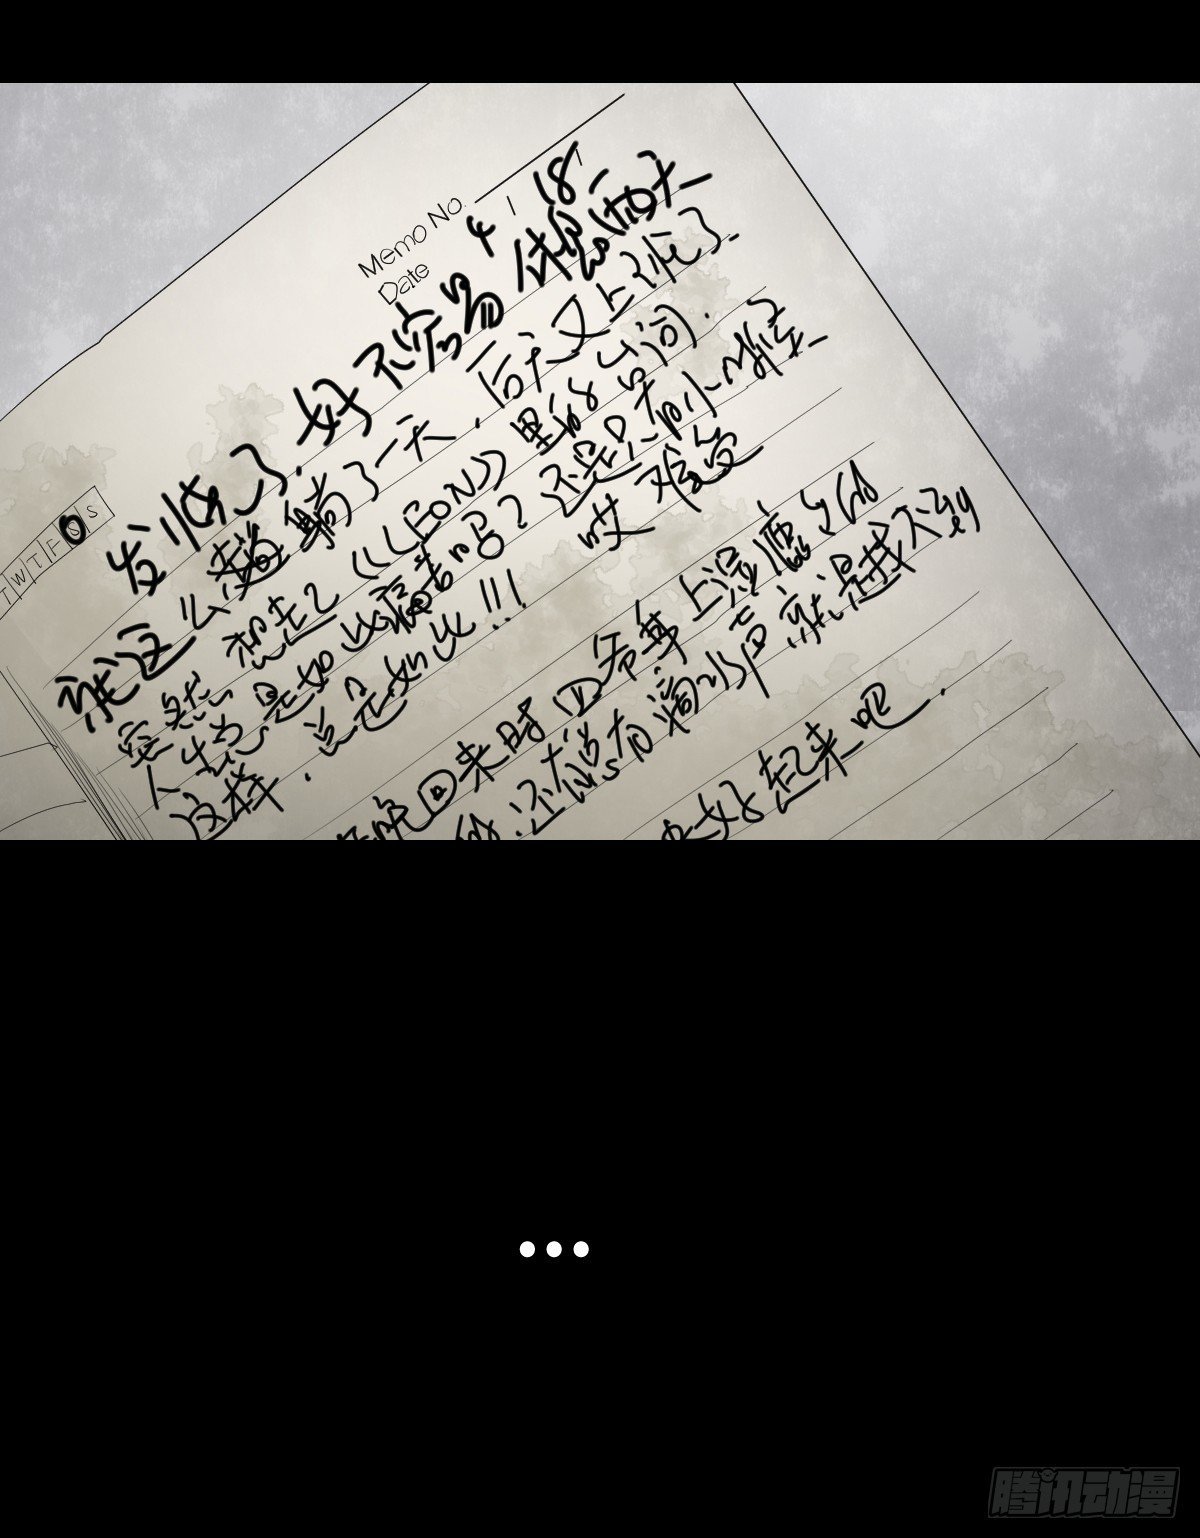 Memo No.
Date 4 / 18
T W T F S S
发烧了.好不容易休息两天
就这么躺了一天,后天又上班了.
突然想起了《LEON》里的台词.
人生总是如此痛苦吗?还是只有小时候
这样.总是如此!!! 哎 难受
晚回来时 四爷耳上湿
还说有滴水声 就是我不
好起来吧.
...
腾讯动漫